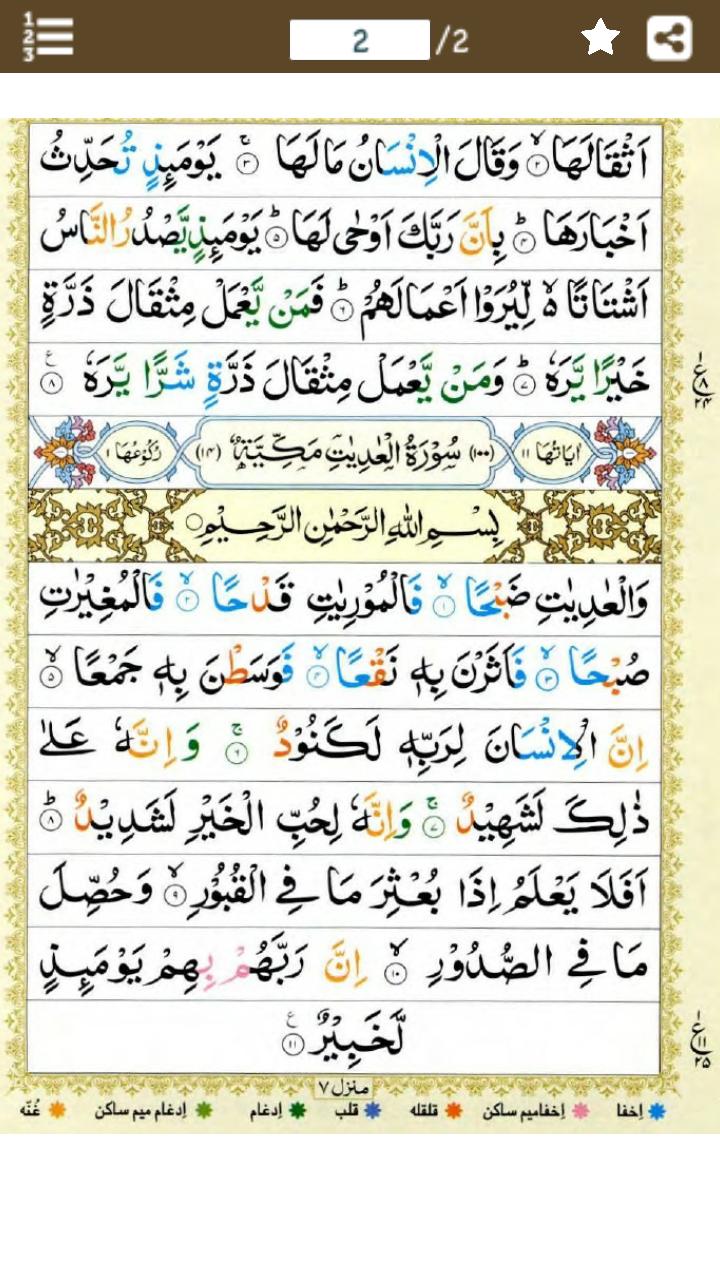 1 2 3
2 /2
اَثْقَالَهَا ۙ﴿۲﴾ وَقَالَ الْاِنْسَانُ مَا لَهَا ۚ﴿۳﴾ يَوْمَىِٕذٍ تُحَدِّثُ
اَخْبَارَهَا ؕ﴿۴﴾ بِاَنَّ رَبَّكَ اَوْحٰى لَهَا ؕ﴿۵﴾ يَوْمَىِٕذٍ يَّصْدُرُ النَّاسُ
اَشْتَاتًا ۙ۬ لِّيُرَوْا اَعْمَالَهُمْ ؕ﴿۶﴾ فَمَنْ يَّعْمَلْ مِثْقَالَ ذَرَّةٍ
خَيْرًا يَّرَهٗ ؕ﴿۷﴾ وَمَنْ يَّعْمَلْ مِثْقَالَ ذَرَّةٍ شَرًّا يَّرَهٗ ﴿۸﴾ ع
ع ۸ ۲۴
اٰيَاتُهَا ۱۱ (۱۰۰) سُوْرَةُ الْعٰدِيٰتِ مَكِّيَّةٌ (۱۴) رُكُوْعُهَا ۱
بِسْمِ اللّٰهِ الرَّحْمٰنِ الرَّحِيْمِ ○
وَالْعٰدِيٰتِ ضَبْحًا ۙ﴿۱﴾ فَالْمُوْرِيٰتِ قَدْحًا ۙ﴿۲﴾ فَالْمُغِيْرٰتِ
صُبْحًا ۙ﴿۳﴾ فَاَثَرْنَ بِهٖ نَقْعًا ۙ﴿۴﴾ فَوَسَطْنَ بِهٖ جَمْعًا ۙ﴿۵﴾
اِنَّ الْاِنْسَانَ لِرَبِّهٖ لَكَنُوْدٌ ۚ﴿۶﴾ وَاِنَّهٗ عَلٰى
ذٰلِكَ لَشَهِيْدٌ ۚ﴿۷﴾ وَاِنَّهٗ لِحُبِّ الْخَيْرِ لَشَدِيْدٌ ؕ﴿۸﴾
اَفَلَا يَعْلَمُ اِذَا بُعْثِرَ مَا فِي الْقُبُوْرِ ۙ﴿۹﴾ وَحُصِّلَ
مَا فِي الصُّدُوْرِ ۙ﴿۱۰﴾ اِنَّ رَبَّهُمْ بِهِمْ يَوْمَىِٕذٍ
لَّخَبِيْرٌ ﴿۱۱﴾ ع
ع ۱۱ ۲۵
منزل ۷
اِخفا اِخفامیم ساکن قلقله قلب اِدغام اِدغام میم ساکن غُنّه